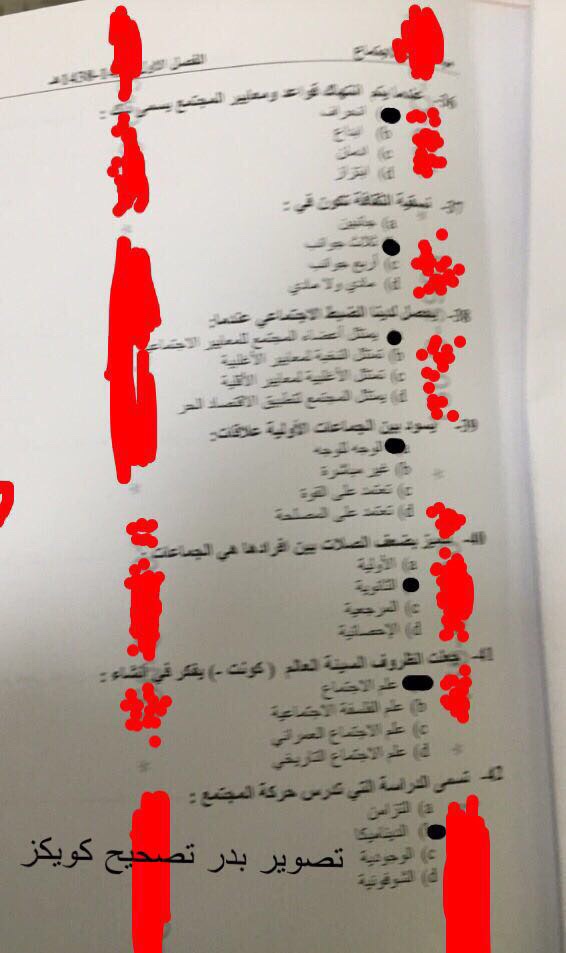 الفصل الاول 14-1438هـ
36- عندما يتم انتهاك قواعد ومعايير المجتمع يسمى ذلك :
انحراف
b) ابداع
c) ادمان
d) ابتزاز
37- نسقية الثقافة تتكون في :
a) جانبين
ثلاث جوانب
c) أربع جوانب
d) مادي ولا مادي
38- يحصل لدينا الضبط الاجتماعي عندما:
يمتثل أعضاء المجتمع للمعايير الاجتماعي
b) تمتثل النخبة لمعايير الأغلبية
c) تمتثل الأغلبية لمعايير الأقلية
d) يمتثل المجتمع لتطبيق الاقتصاد الحر
39- يسود بين الجماعات الأولية علاقات:
الوجه للوجه
b) غير مباشرة
c) تعتمد على القوة
d) تعتمد على المصلحة
40- يضعف الصلات بين افرادها هي الجماعات :
a) الأولية
الثانوية
c) المرجعية
d) الإحصائية
41- جعلت الظروف السيئة العالم ( كونت -) يفكر في انشاء :
علم الاجتماع
b) علم الفلسفة الاجتماعية
c) علم الاجتماع العمراني
d) علم الاجتماع التاريخي
42- تسمى الدراسة التي تدرس حركة المجتمع :
a) التزامن
الديناميكا
c) الوجودية
d) الشوفونية
تصوير بدر تصحيح كويكز